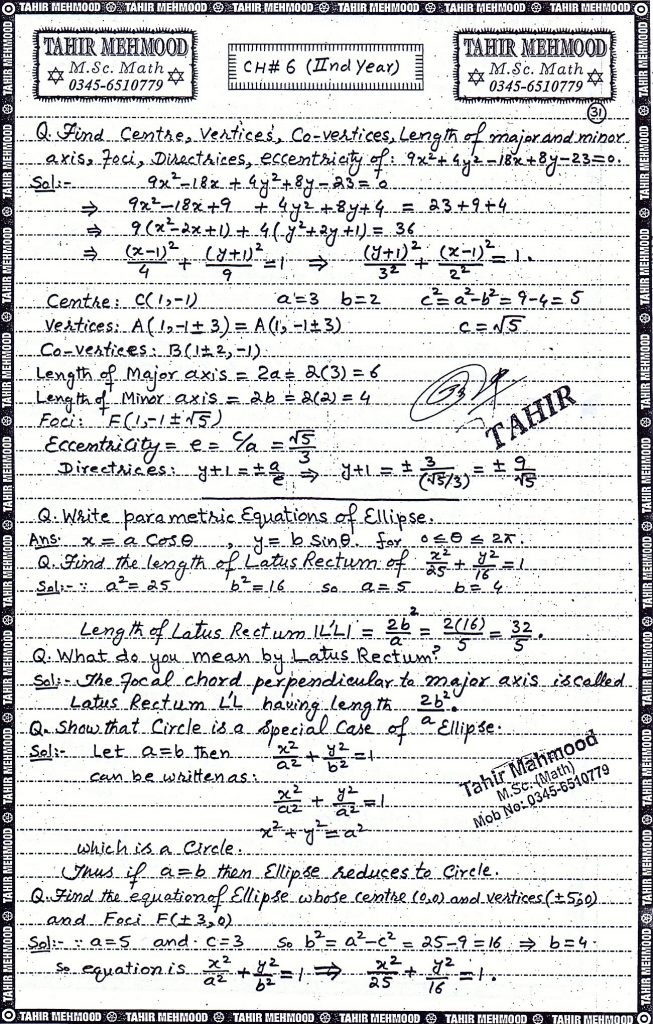 TAHIR MEHMOOD TAHIR MEHMOOD TAHIR MEHMOOD TAHIR MEHMOOD TAHIR MEHMOOD TAHIR MEHMOOD
TAHIR MEHMOOD
M.Sc. Math
0345-6510779
CH# 6 (IInd Year)
TAHIR MEHMOOD
M.Sc. Math
0345-6510779
31
Q. Find Centre, Vertices, Co-vertices, Length of major and minor
axis, Foci, Directrices, eccentricity of: 9x²+4y²-18x+8y-23=0.
Sol:- 9x²-18x + 4y²+8y-23 = 0
⇒ 9x²-18x+9 + 4y²+8y+4 = 23+9+4
⇒ 9(x²-2x+1) + 4(y²+2y+1) = 36
⇒ (x-1)²/4 + (y+1)²/9 = 1 ⇒ (y+1)²/3² + (x-1)²/2² = 1.
Centre: C(1,-1) a=3 b=2 c²=a²-b²= 9-4= 5
Vertices: A(1,-1±3) = A(1,-1±3) c=√5
Co-vertices: B(1±2,-1)
Length of Major axis = 2a = 2(3) = 6
Length of Minor axis = 2b = 2(2) = 4
Foci: F(1,-1±√5)
TAHIR
Eccentricity = e = c/a = √5/3
Directrices: y+1 = ± a/e ⇒ y+1 = ± 3/(√5/3) = ± 9/√5
Q. Write parametric Equations of Ellipse.
Ans. x = a Cosθ , y = b Sinθ. for 0≤θ≤2π.
Q. Find the length of Latus Rectum of x²/25 + y²/16 = 1
Sol:- ∵ a²=25 b²=16 so a=5 b=4
Length of Latus Rectum |L'L| = 2b²/a = 2(16)/5 = 32/5.
Q. What do you mean by Latus Rectum?
Sol:- The Focal chord perpendicular to major axis is called
Latus Rectum L'L having length 2b²/a.
Q. Show that Circle is a Special Case of Ellipse.
Sol:- Let a=b then x²/a² + y²/b² = 1
can be written as:
x²/a² + y²/a² = 1
x²+y²=a²
Tahir Mahmood
M.Sc. (Math)
Mob No: 0345-6510779
which is a Circle.
Thus if a=b then Ellipse reduces to Circle.
Q. Find the equation of Ellipse whose centre (0,0) and vertices (±5,0)
and Foci F(±3,0)
Sol:- ∵ a=5 and c=3 So b²= a²-c² = 25-9=16 ⇒ b=4.
so equation is x²/a² + y²/b² = 1 ⇒ x²/25 + y²/16 = 1.
TAHIR MEHMOOD TAHIR MEHMOOD TAHIR MEHMOOD TAHIR MEHMOOD TAHIR MEHMOOD TAHIR MEHMOOD